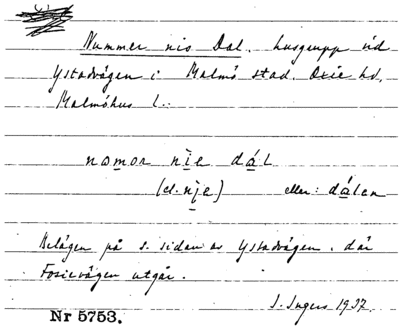 Nummer nio Dal. husgrupp vid
Ystadvägen i Malmö stad. Oxie hd,
Malmöhus l.
nomor nie dál
(el. nje) eller: dálen
Belägen på s. sidan av Ystadvägen, där
Fosievägen utgår.
I. Ingers 1937.
Nr 5753.